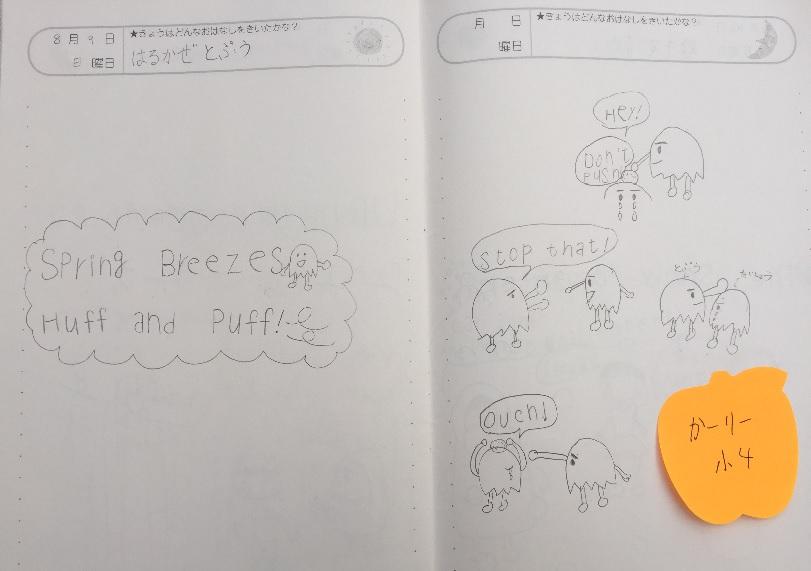 8月9日
日曜日
★きょうはどんなおはなしをきいたかな?
はるかぜとぷう
Spring Breezes
Huff and Puff!
月 日
曜日
★きょうはどんなおはなしをきいたかな?
Hey!
Don't
push
Stop that!
とぷう
Ouch!
かーりー
小4